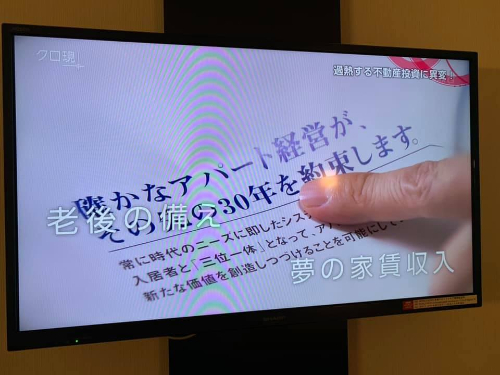 クロ現+
過熱する不動産投資に異変
確かなアパート経営が、
30年を約束します。
老後の備え
常に時代のニーズに即したシス
入居者と「三位一体」となって、アパ
新たな価値を創造しつづけることを可能にして
夢の家賃収入